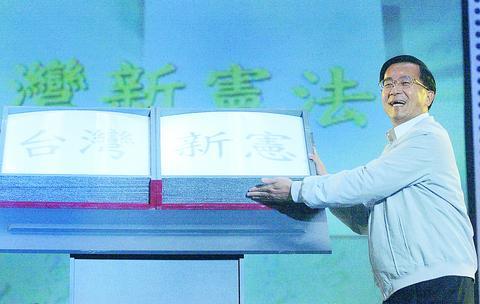 灣新憲法
台灣 新憲